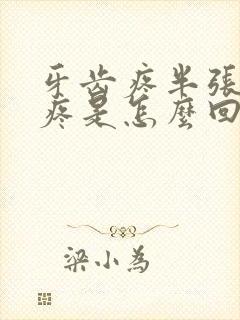 牙齿疼半張
疼是怎麼回
梁小為